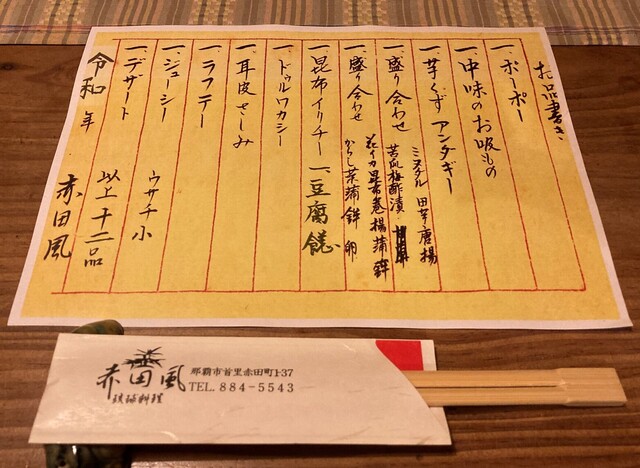 お品書き
一、ポーポー
一、中味のお吸もの
一、芋くずアンダギー
一、盛り合わせ ミヌダル 田芋唐揚
苦瓜梅酢漬
一、盛り合わせ 花イカ 昆布巻 揚蒲鉾
からし菜蒲鉾 卵
一、昆布イリチー 一、豆腐餻
一、ドゥルワカシー
一、耳皮さしみ
一、ラフテー
一、ジューシー ウサチ小
一、デザート
以上十二品
令和 年
赤田風
赤田風
琉球料理
那覇市首里赤田町1-37
TEL. 884-5543